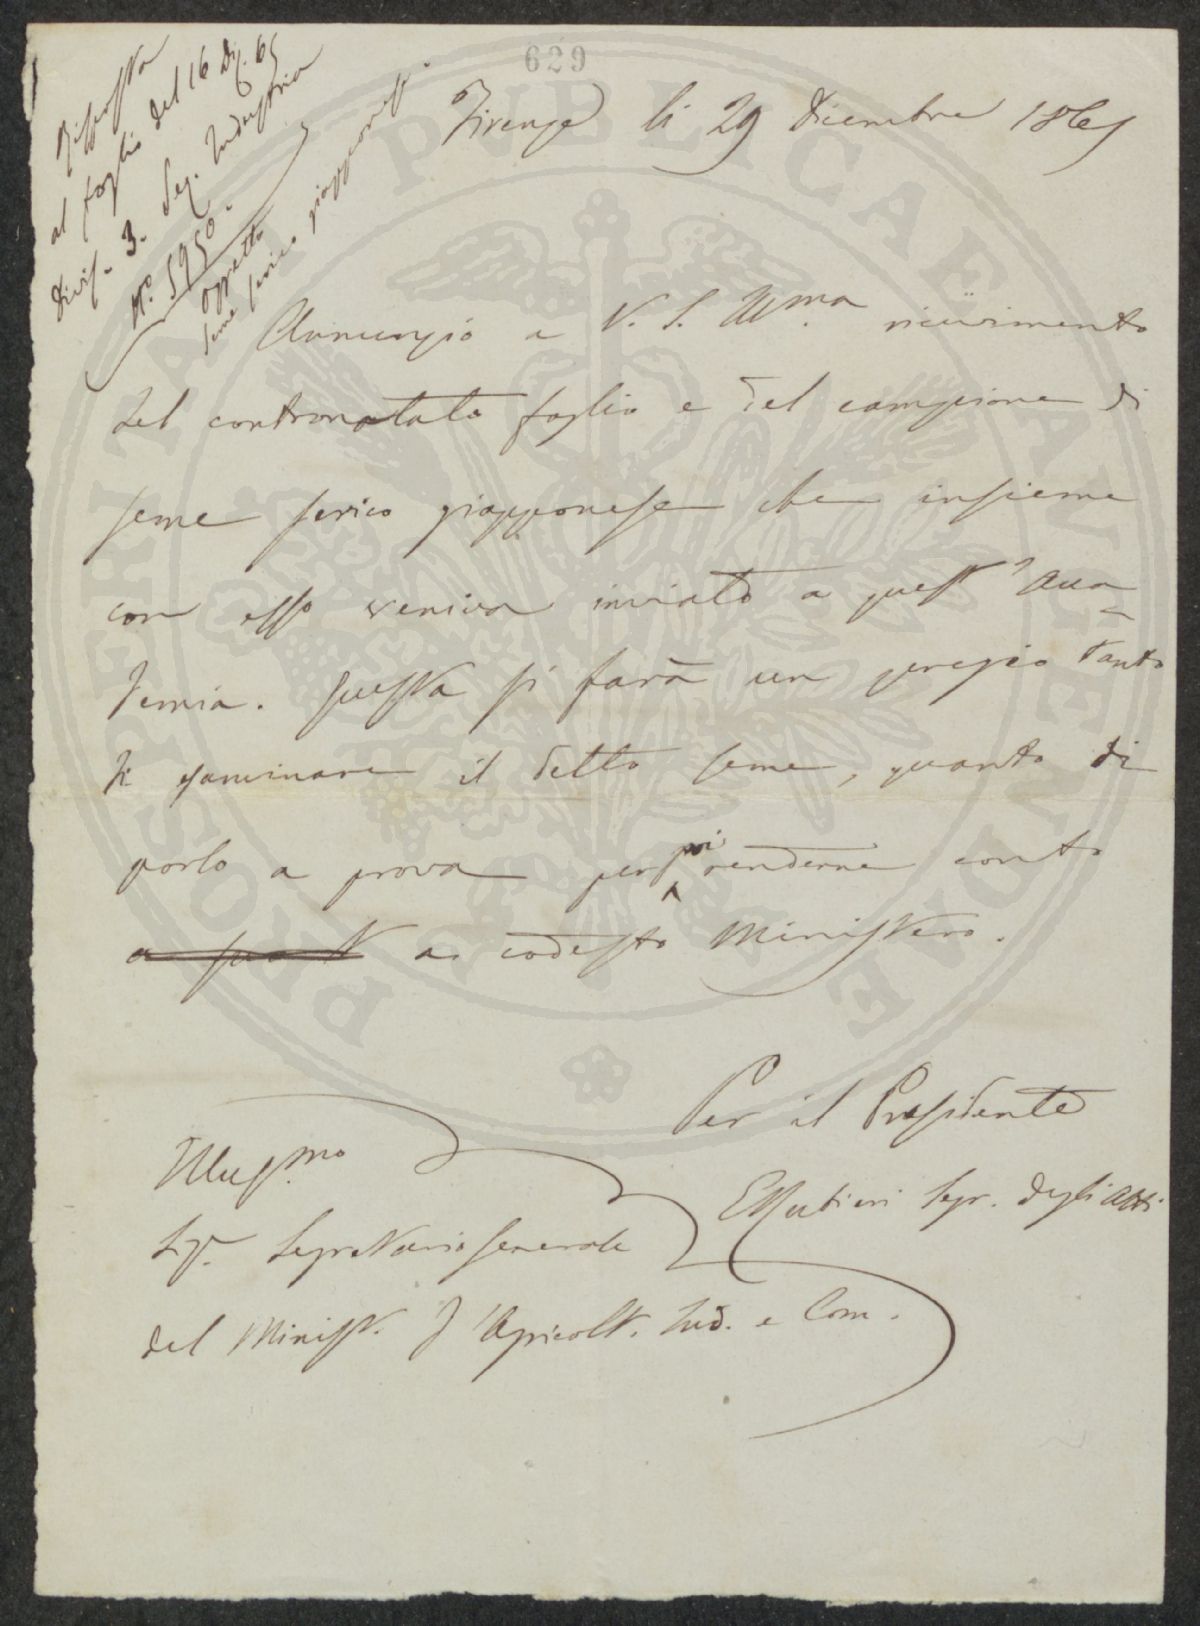 629
Risposta
al foglio del 16 Dic. 65
Divis. 3. Sez. Industria
N.° 5950.
Oggetto
Seme serico giapponese.
Firenze li 29 Dicembre 1865
Annunzio a V. S. Ill.ma ricevimento
del contronotato foglio e del campione di
seme serico giapponese che insieme
con esso veniva inviato a quest'Acca-
demia. Questa si farà un pregio tanto
di esaminare il detto seme, quanto di
porlo a prova per poi renderne conto
a codesto Ministero.
Per il Presidente
Segr. degli Atti
Illus.mo
Sig. Segretario Generale
del Minist. d'Agricolt. Ind. e Com.
PROSPERITATI PUBLICAE AUGENDAE